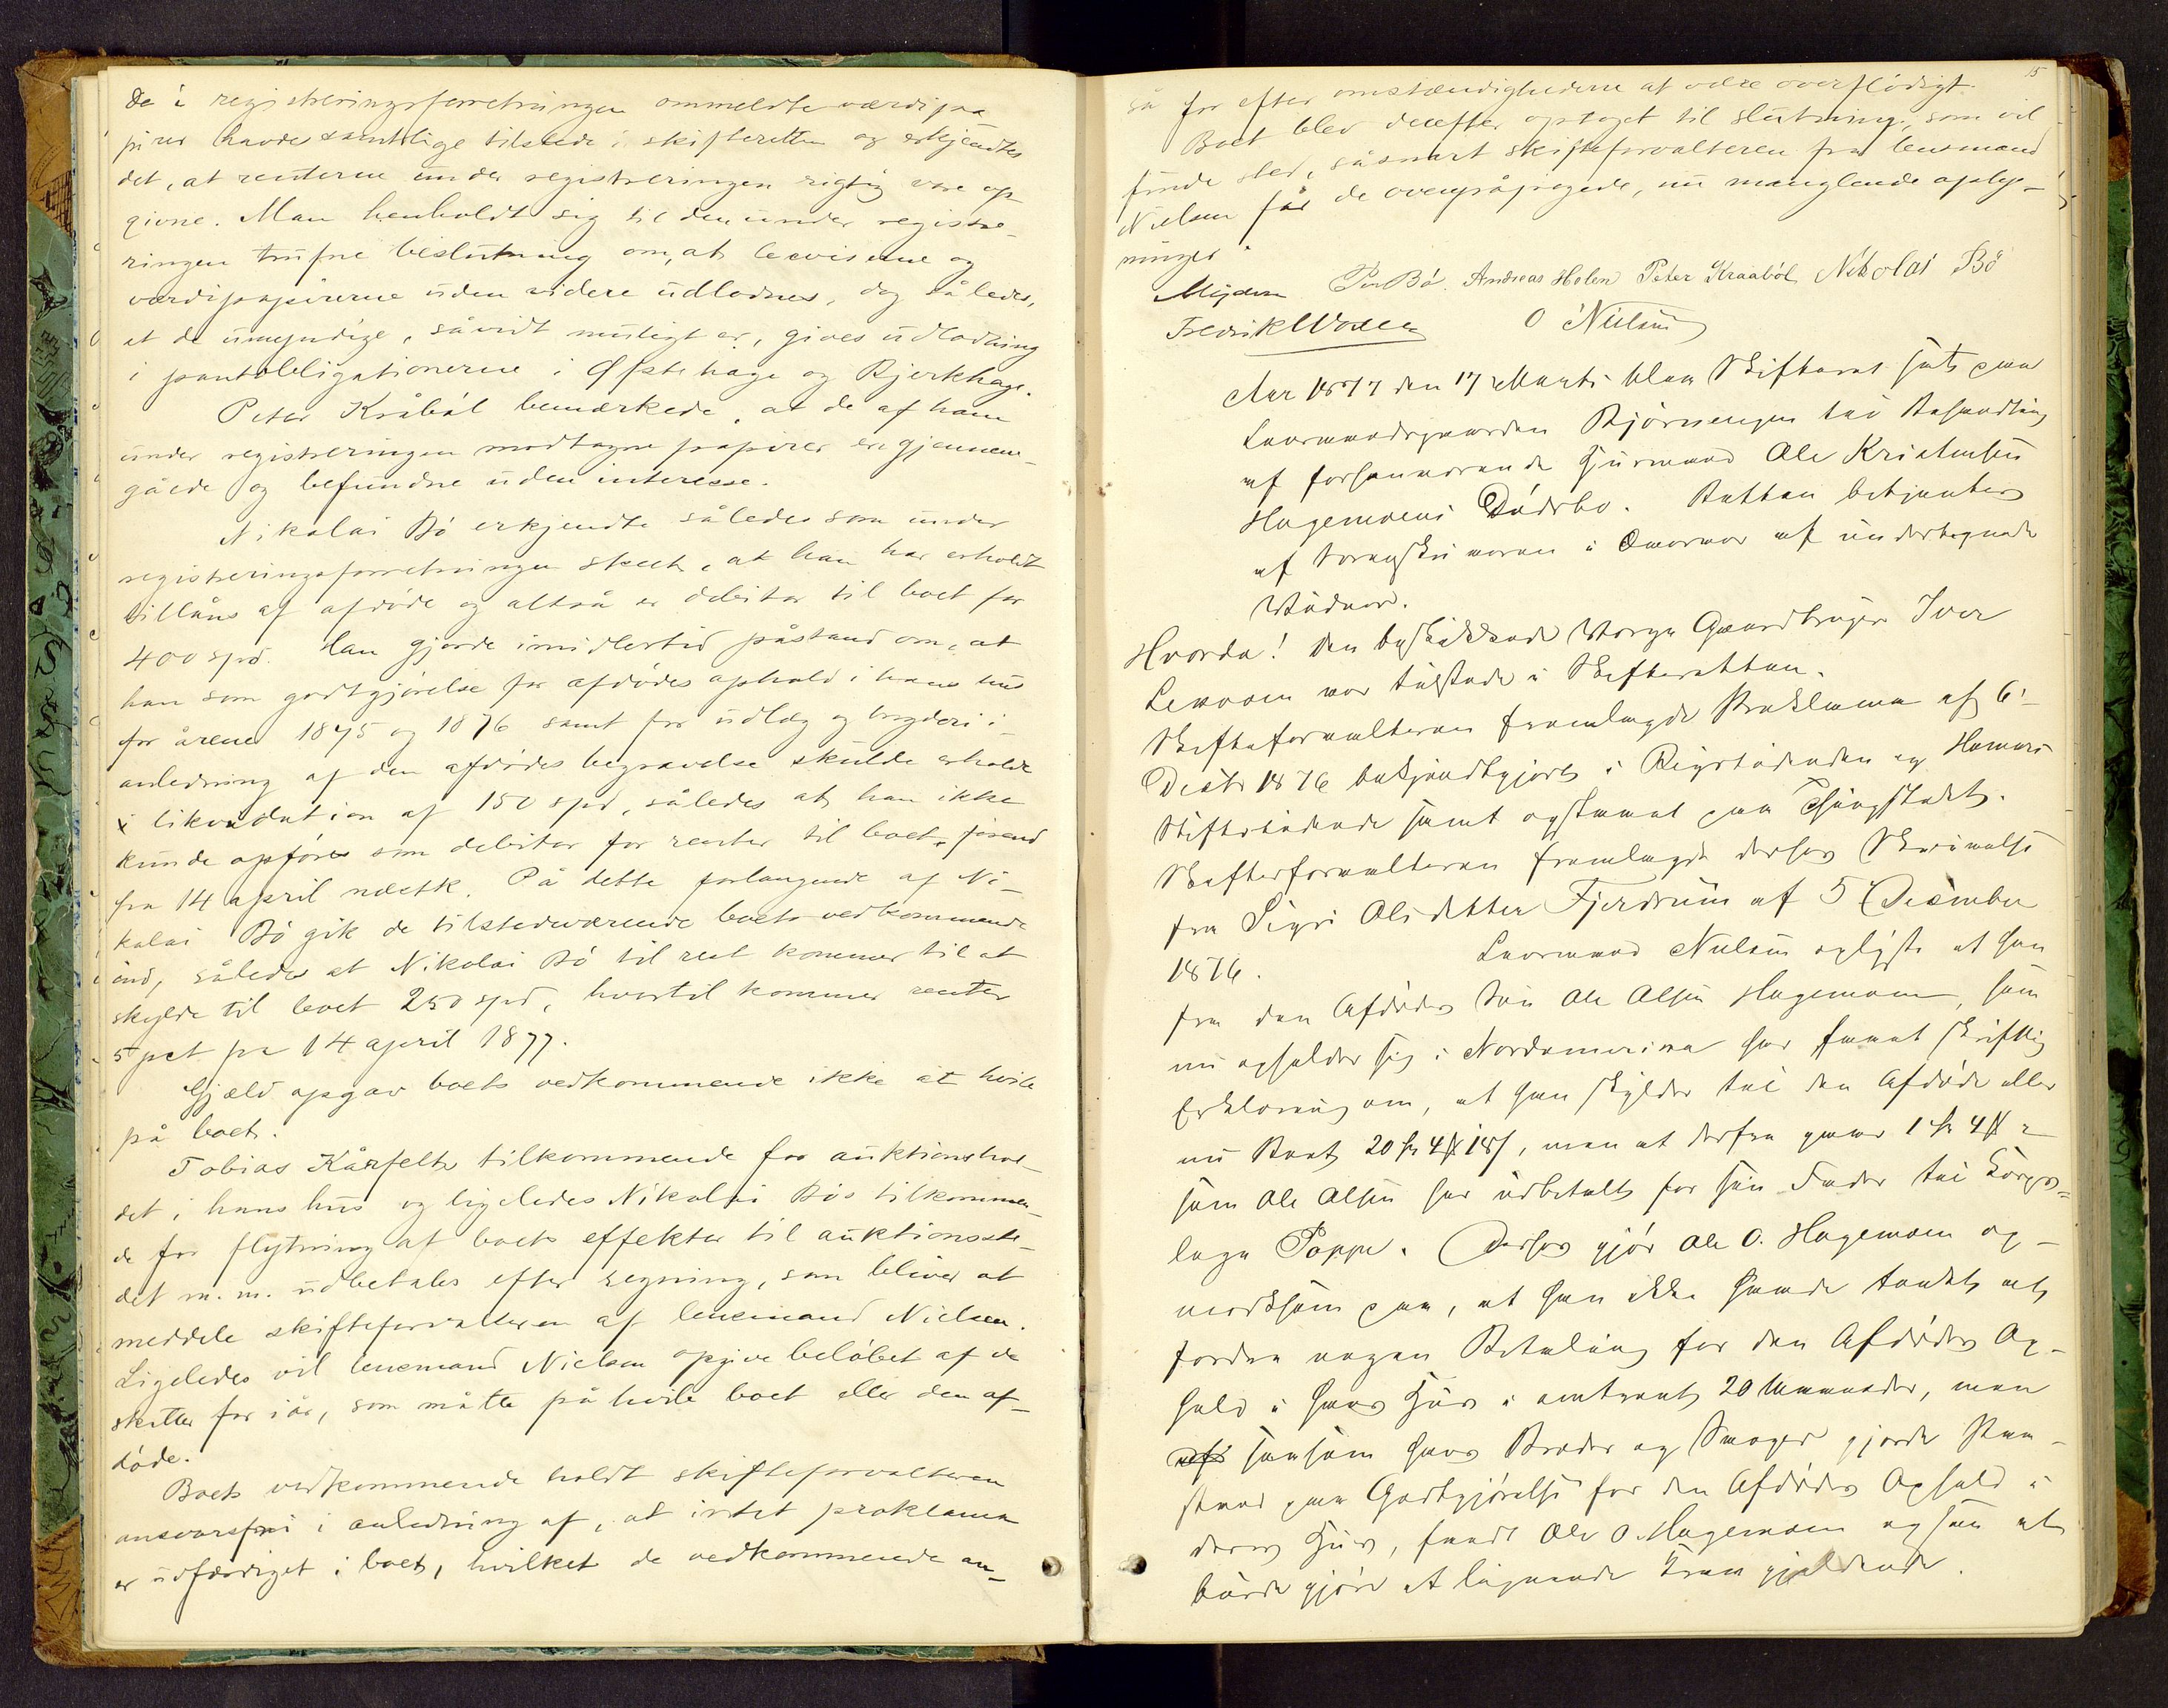 De i registreringsforretningen ommeldte værdipa
pirer havdes samtlige tilstede i skifteretten og erkjendtes
det, at renterne under registreringen rigtig vare op-
givne. Man henholdt sig til den under registre-
ringen trufne beslutning om, at beviserne og
værdipapirerne uden videre udlodnes, dog således,
at de umyndige, såvidt muligt er, gives udlodning
i pantobligationerne i Øfstehage og Bjerkhage.
Peter Kråból bemærkede, at de af ham
under registreringen modtagne papirer er gjennem-
gåede og befundne uden interesse.
Nikolai Bó erkjendte således som under
registreringsforretningen skeet, at han har erholdt
tillåns af afdøde og altså er debitor til boet for
400 spd. Han gjorde imidlertid påstand om, at
han som godtgjørelse for afdødes ophold i hans hus
for årene 1875 og 1876 samt for udlæg og bryderi i
anledning af den afdødes begravelse skulde erholde
i likvidation af 150 spd, således at han ikke
kunde opføres som debitor for renter til boet, førend
fra 14 april næstk. På dette forlangende af Ni-
kolai Bó gik de tilstedeværende boets vedkommende
ind, således at Nikolai Bó til rest kommer til at
skylde til boet 250 spd, hvortil kommer renter
5 pct fra 14 april 1877.
Gjæld opgav boets vedkommende ikke at hvile
på boet.
Tobias Kårfelts tilkommende for auktionshol-
det i hans hus og ligeledes Nikolai Bós tilkommen-
de for flytning af boets effekter til auktionsste-
det m.m. udbetales efter regning, som bliver at
meddele skifteforvalteren af lensmand Nielsen.
Ligeledes vil lensmand Nielsen opgive beløbet af de
skatter for iår, som måtte påhvile boet eller den af-
døde.
Boets vedkommende holdt skifteforvalteren
ansvarsfri i anledning af, at intet proklama
er udfærdiget i boet, hvilket de vedkommende an-
15
så for efter omstændighederne at være overflødigt.
Boet blev derefter optaget til slutning, som vil
finde sted, såsnart skifteforvalteren fra lensmand
Nielsen får de ovenpåpegede, nu manglende oplys-
ninger.
Per Bó. Andreas Holen Peter Kraaból Nikolai Bö
Fredrik O Nielsen
Aar 1877 den 17 Marts blev Skifteret sat paa
Lensmandsgaarden Bjórnengen til Behandling
af forhenværende Huusmand Ole Kristensen
Hagemoens Dødsbo. Retten betjentes
af Sorenskriveren i Overvær af undertegnede
Vidner.
Hvorda! Den beskikkede Verge Gaardbruger Iver
Lewosen var tilstede i Skifteretten.
Skifteforvalteren fremlagde Proklama af 6'
Decbr 1876 bekjendtgjort i Rigstidenden og Hamars
Stiftstidende samt opslaaet paa Thingstedet.
Skifteforvalteren fremlagde derhos Skrivelse
fra Sigri Olsdatter Fjerdrum af 5 December
1876. Lensmand Nielsen oplyste at han
fra den Afdødes Søn Ole Olsen Hagemoen, som
nu opholder sig i Nordamerika har faaet skriftlig
Erklæring om, at han skylder til den Afdøde eller
nu Boet 20 Spd 4 18, men at derfra gaaer 1 Spd 4
som Ole Olsen har udbetalt for sin Fader til Korps-
læge Poppe. Derhos gjór Ole O. Hagemoen op-
mærksom paa, at han ikke havde tænkt at
fordre nogen Betaling for den Afdødes Op-
hold i hans Huus i omtrent 20 Maaneder, men
saasom hans Broder og Svoger gjorde Paa-
stand paa Godtgjórelse for den Afdødes Ophold i
deres Huus, fandt Ole O. Hagemoen ogsaa at
burde gjóre et lignende Krav gjældende.